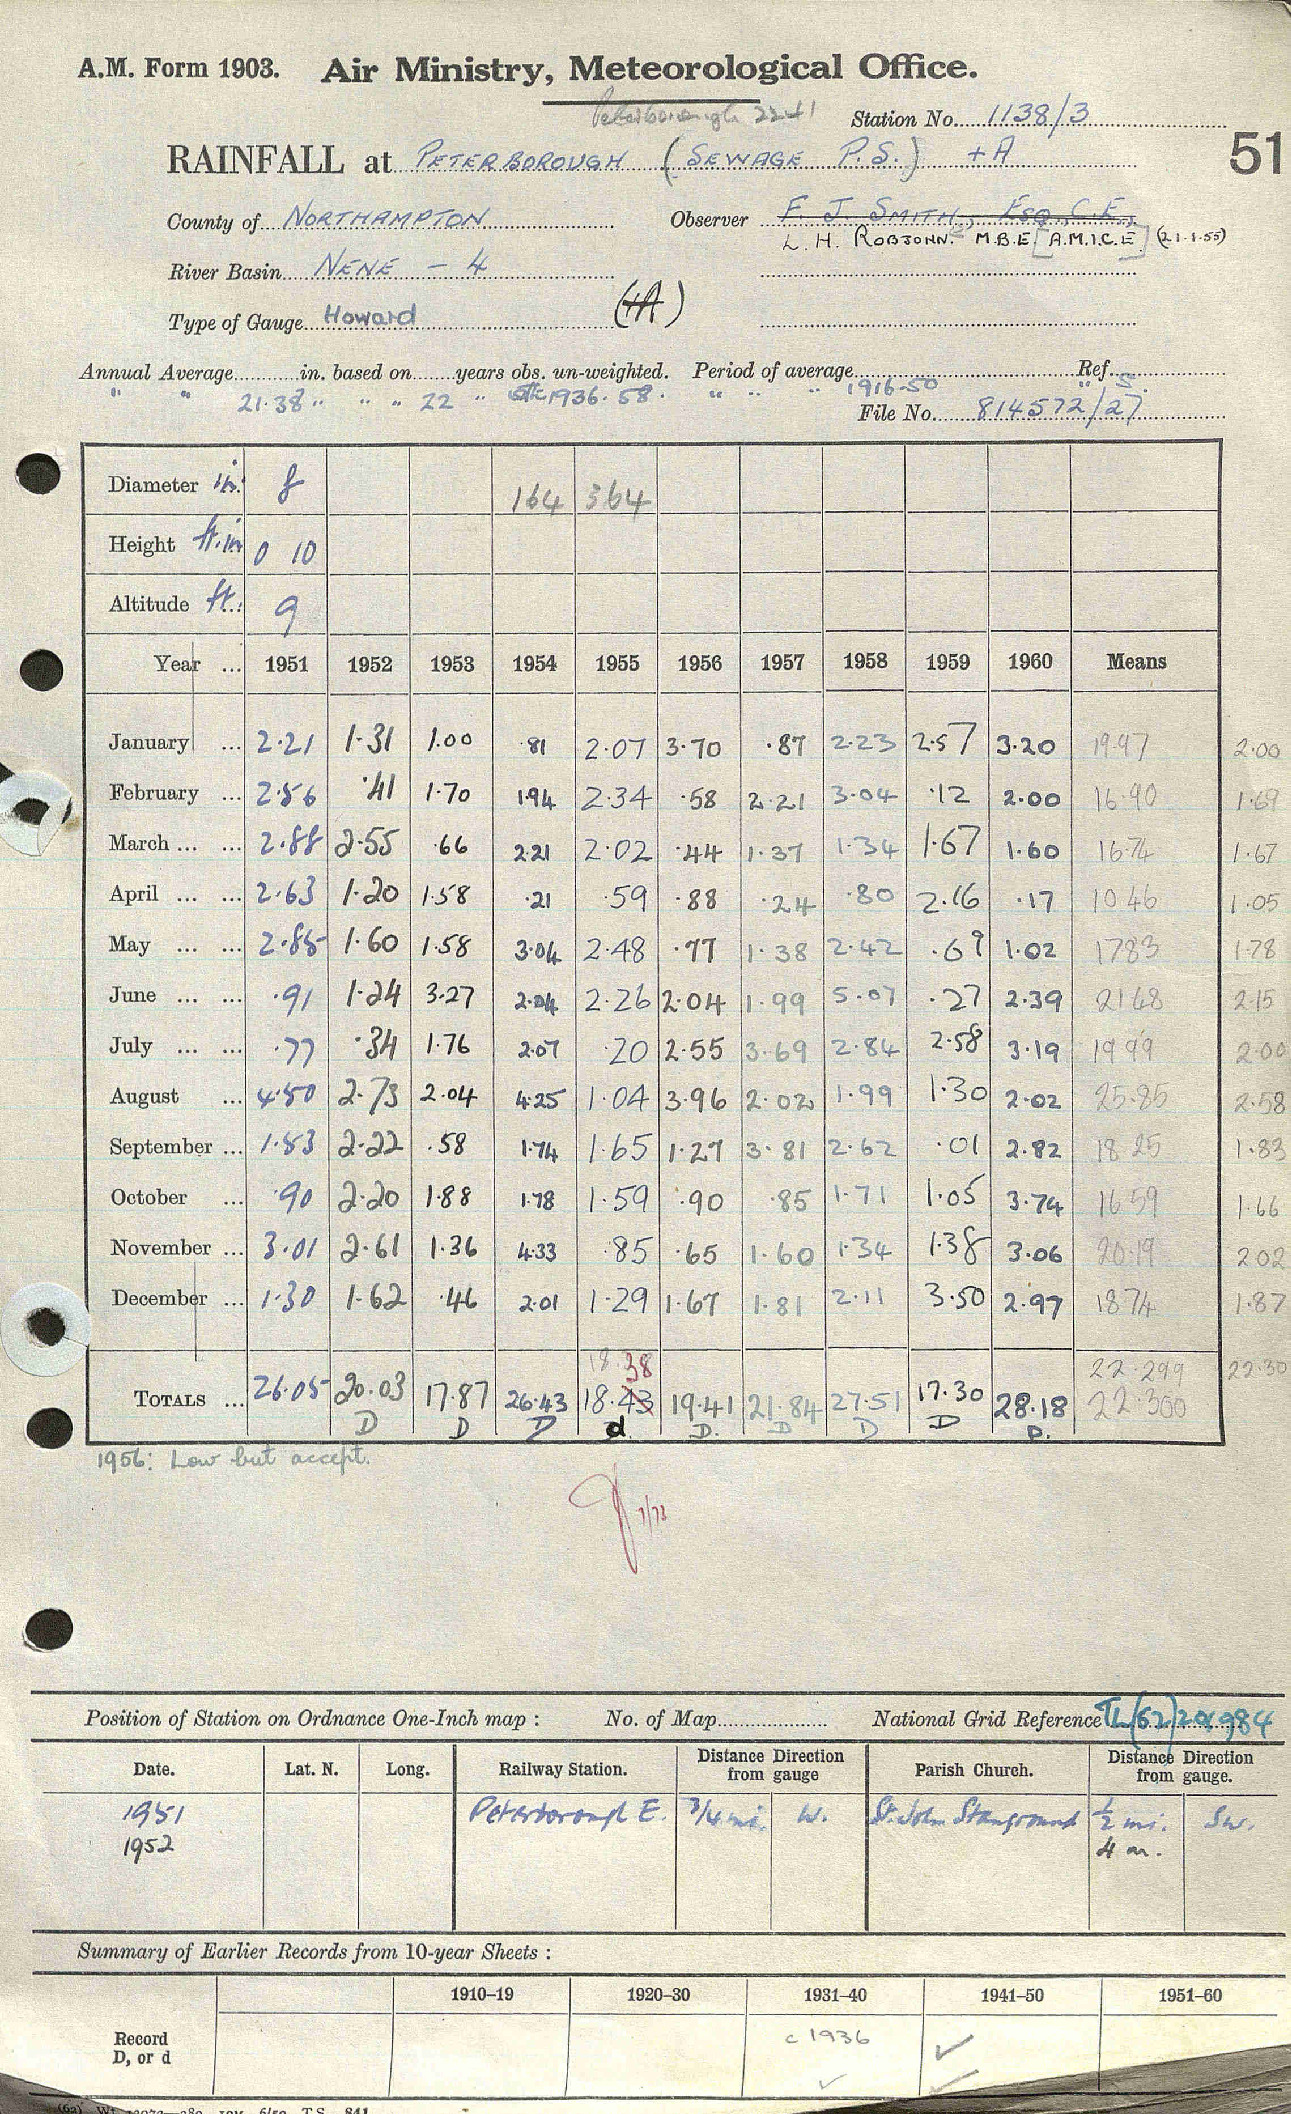 A.M. Form 1903. Air Ministry, Meteorological Office.
Peterborough 2241
Station No. 1138/3
RAINFALL at PETERBOROUGH (SEWAGE P.S.) +A
51
County of NORTHAMPTON Observer F. J. SMITH, ESQ., C.E.,
L. H. ROBJOHN. M.B.E [A.M.I.C.E] (21.1.55)
River Basin NENE - 4
Type of Gauge Howard (+A)
Annual Average in. based on years obs. un-weighted. Period of average Ref.
" " 21.38 " " " 22 " 1936-58. " " " 1916-50 " S.
File No. 814572/27
Diameter in. 8 164 364
Height ft. in 0 10
Altitude ft. 9
Year ... 1951 1952 1953 1954 1955 1956 1957 1958 1959 1960 Means
January ... 2.21 1.31 1.00 .81 2.07 3.70 .87 2.23 2.57 3.20 19.97 2.00
February ... 2.56 .41 1.70 1.94 2.34 .58 2.21 3.04 .12 2.00 16.90 1.69
March ... ... 2.88 2.55 .66 2.21 2.02 .44 1.37 1.34 1.67 1.60 16.74 1.67
April ... ... 2.63 1.20 1.58 .21 .59 .88 .24 .80 2.16 .17 10.46 1.05
May ... ... 2.85 1.60 1.58 3.04 2.48 .77 1.38 2.42 .69 1.02 17.83 1.78
June ... ... .91 1.24 3.27 2.04 2.26 2.04 1.99 5.07 .27 2.39 21.48 2.15
July ... ... .77 .34 1.76 2.07 .20 2.55 3.69 2.84 2.58 3.19 19.99 2.00
August ... 4.50 2.73 2.04 4.25 1.04 3.96 2.02 1.99 1.30 2.02 25.85 2.58
September ... 1.53 2.22 .58 1.74 1.65 1.27 3.81 2.62 .01 2.82 18.25 1.83
October ... .90 2.20 1.88 1.78 1.59 .90 .85 1.71 1.05 3.74 16.59 1.66
November ... 3.01 2.61 1.36 4.33 .85 .65 1.60 1.34 1.38 3.06 20.19 2.02
December ... 1.30 1.62 .46 2.01 1.29 1.67 1.81 2.11 3.50 2.97 18.74 1.87
18.38 22.299 22.30
TOTALS ... 26.05 20.03 17.87 26.43 18.43 19.41 21.84 27.51 17.30 28.18 22.300
D D D d D. D D D D.
1956: Low but accept.
7/73
Position of Station on Ordnance One-Inch map : No. of Map National Grid Reference TL(52) 984
Date. Lat. N. Long. Railway Station. Distance Direction from gauge Parish Church. Distance Direction from gauge.
1951 Peterborough E. 3/4 mi. W. St. John Stanground 1/2 mi. SW.
1952 4 m.
Summary of Earlier Records from 10-year Sheets :
1910-19 1920-30 1931-40 1941-50 1951-60
Record
D, or d
c 1936 ✓
✓ ✓